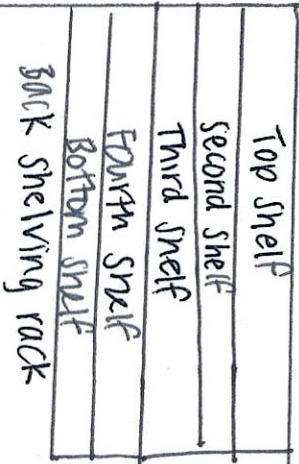 Top shelf
second shelf
Third shelf
Fourth shelf
Bottom shelf
Back shelving rack